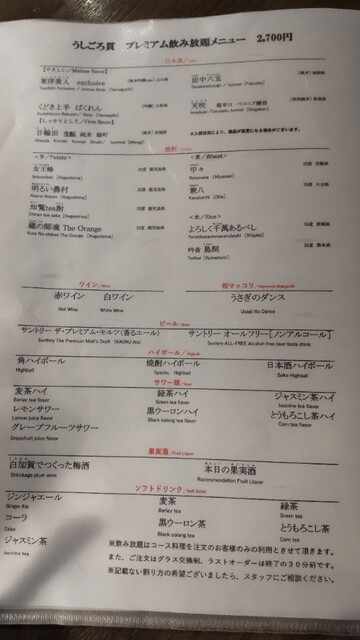 うしごろ貫 プレミアム飲み放題メニュー 2,700円
日本酒/
【やさしい/Mellow flavor】
東洋美人 exclusive
田中六五
くどき上手 ばくれん
天吹 超辛口
【しっかりとした/
日輪田 生酛 純米 雄町
※入荷状況により、商品が変更になる場合がございます。
焼酎/
<芋/Potato>
<麦/Wheat>
女王蜂 25度 鹿児島県
中々 25度 宮崎県
Nakanaka [Miyazaki]
明るい農村 25度 鹿児島県
兼八 25度 大分県
Kanehachi [Oita]
知覧Tea酎 25度 鹿児島県
<米/Rice>
Chiran tea sake [Kagoshima]
よろしく千萬あるべし 25度 新潟県
蔵の師魂 The Orange 25度 鹿児島県
吟香 鳥飼 25度 熊本県
Kura No shikon The Orange [Kagoshima]
Torikai [Kumamoto]
ワイン/Wine
和マッコリ/
赤ワイン 白ワイン うさぎのダンス
Red Wine White Wine Usagi No Dance
ビール/Beer
サントリー ザ・プレミアム・モルツ(香るエール) サントリー オールフリー[ノンアルコール]
Suntory The Premium Malt's Draft (KAORU Ale) Suntory ALL-FREE Alcohol-free beer taste drink
ハイボール/Highball
角ハイボール 焼酎ハイボール 日本酒ハイボール
Highball Syochu Highball Sake Highball
サワー類/Sour
麦茶ハイ 緑茶ハイ ジャスミン茶ハイ
Barley tea flavor Green tea flavor Jasmine tea flavor
レモンサワー 黒ウーロンハイ とうもろこし茶ハイ
Lemon juice flavor Black oolong tea flavor Corn tea flavor
グレープフルーツサワー
Grapefruit juice flavor
果実酒/Fruit Liquor
白加賀でつくった梅酒 本日の果実酒
Shirokaga plum wine Recommendation Fruit Liquor
ソフトドリンク/Soft Drink
ジンジャエール 麦茶 緑茶
Ginger Ale Barley tea Green tea
コーラ 黒ウーロン茶 とうもろこし茶
Coke Black oolong tea Corn tea
ジャスミン茶
Jasmine tea
※飲み放題はコース料理を注文のお客様のみの利用とさせて頂きます。
また、ご注文はグラス交換制、ラストオーダーは終了の30分前です。
※記載ない割り方の希望ございましたら、スタッフにご相談ください。